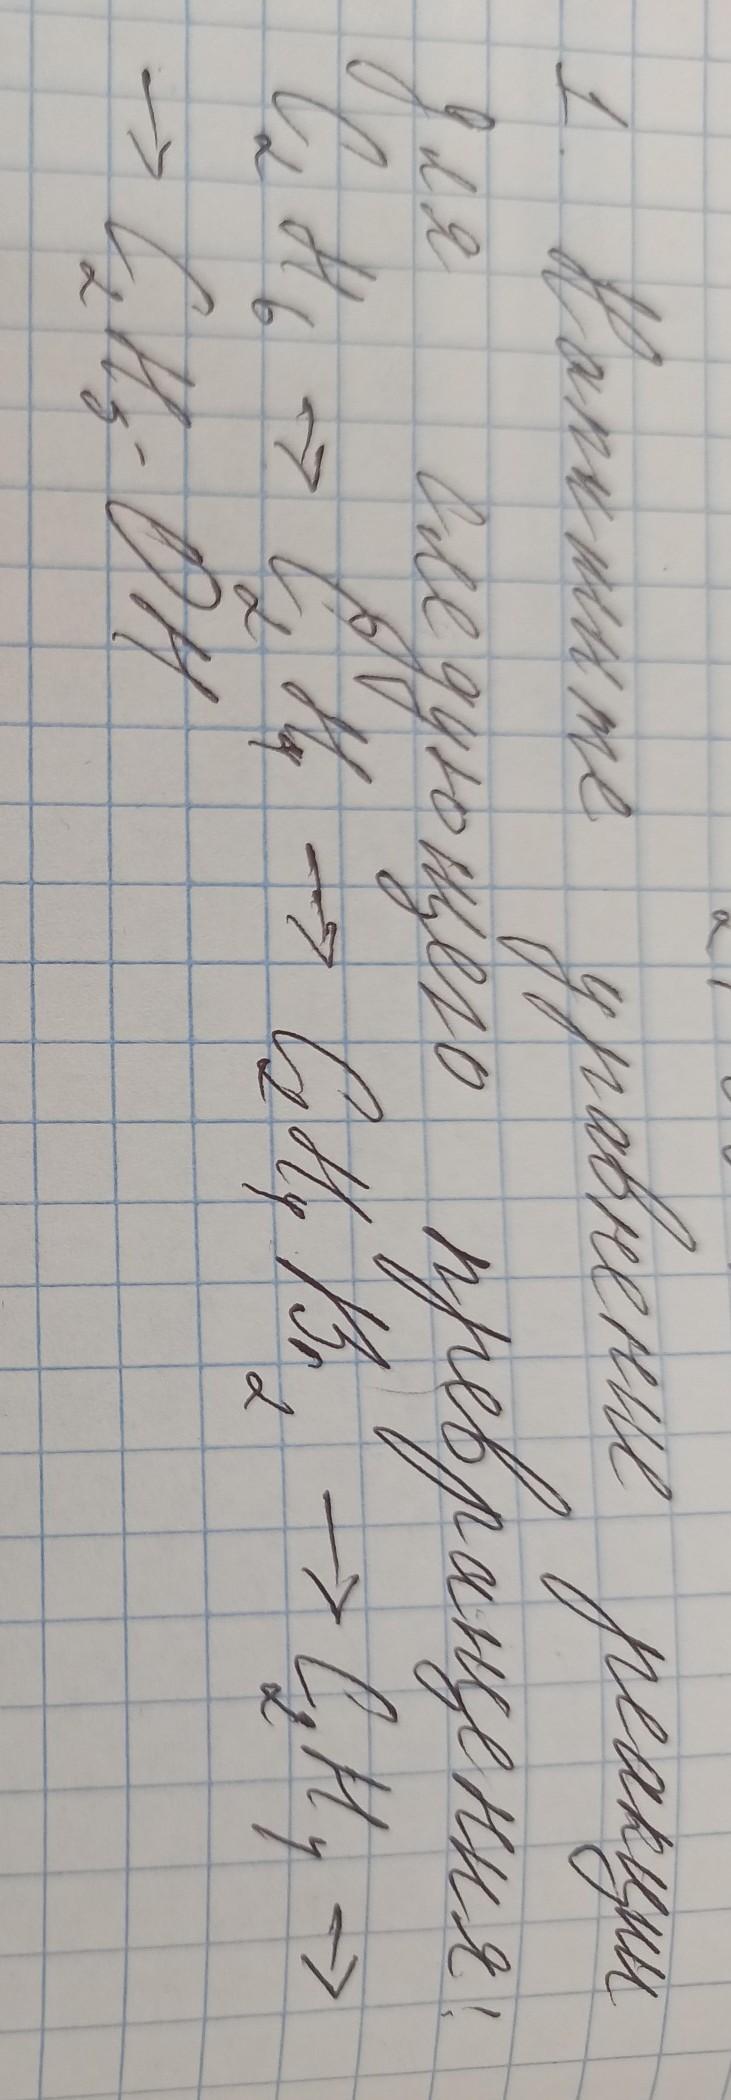 1. Напишите уравнение реакции
для следующего превращения:
C₂H₆ → C₂H₄ → C₂H₄Br₂ → C₂H₄ →
→ C₂H₅-OH